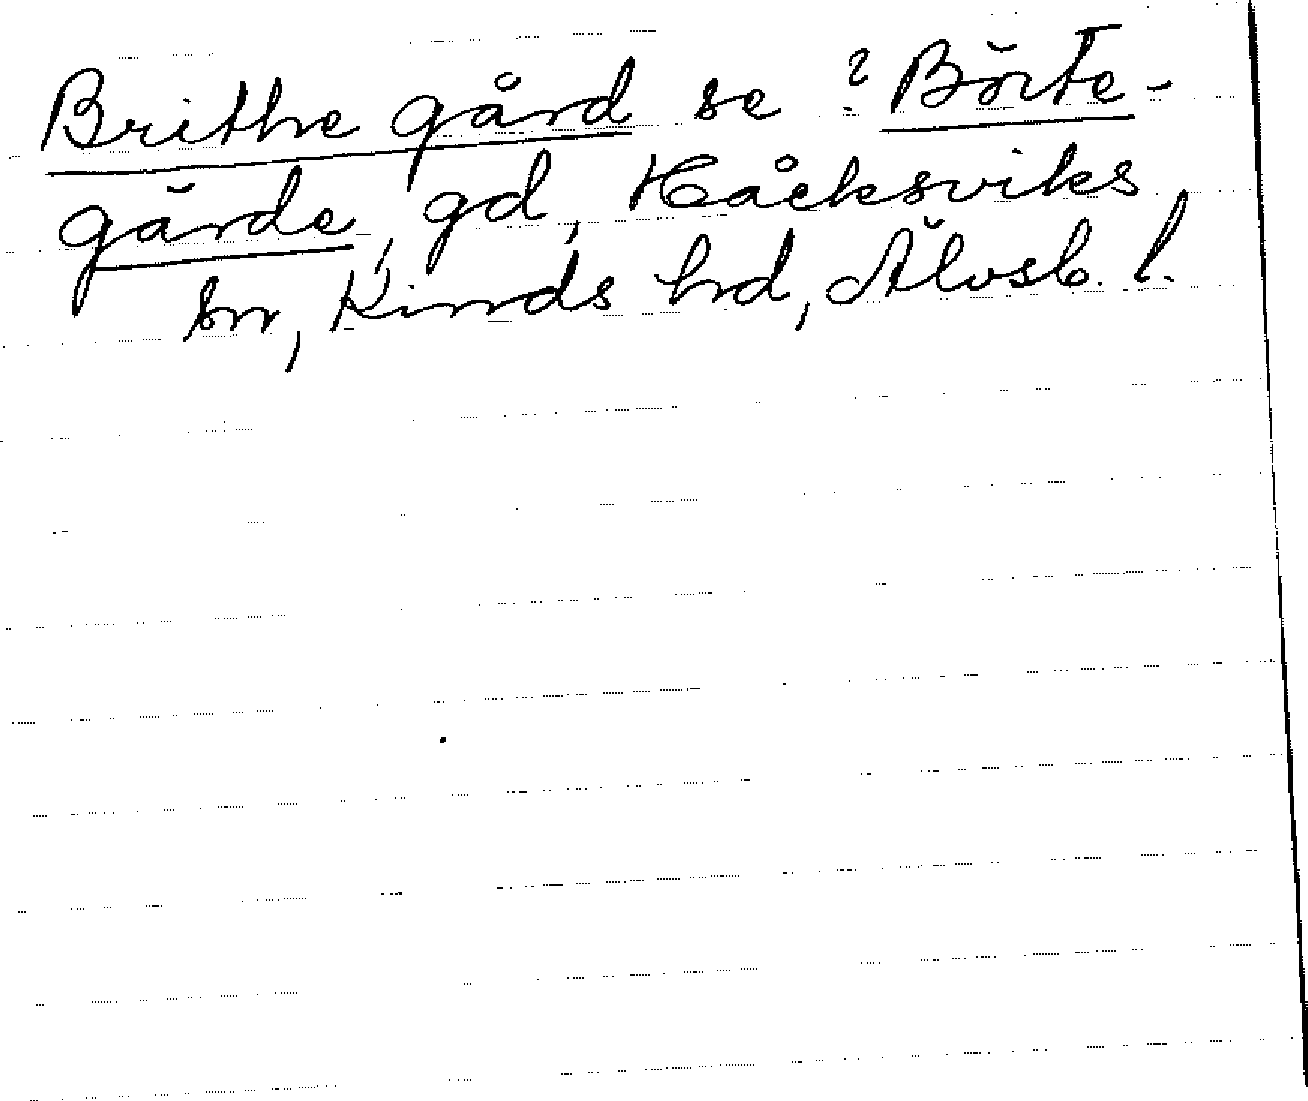 Brithe gård se ? Börte-
gärde, gd, Håcksviks
sn, Kinds hd, Älvsb. l.